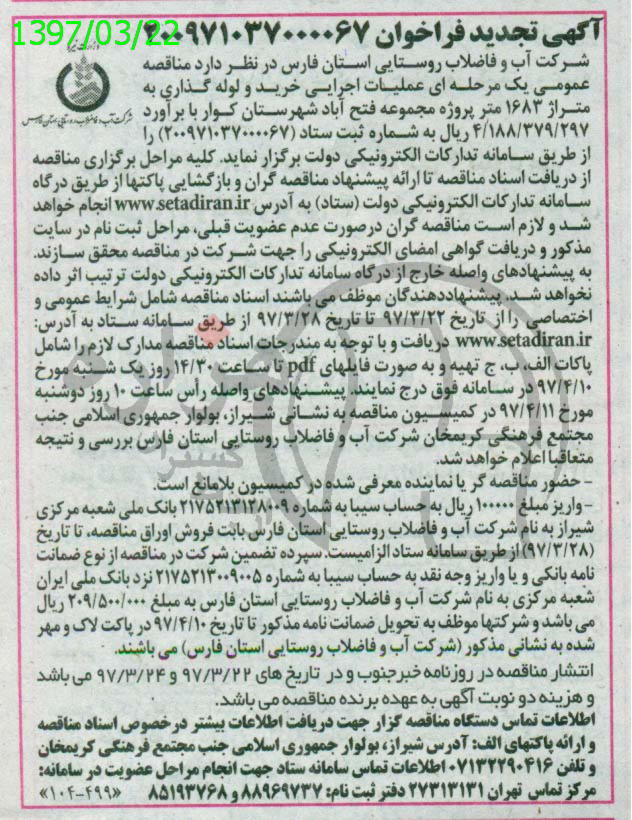 1397/03/22
آگهی تجدید فراخوان ۲۰۰۹۷۱۰۳۷۰۰۰۰۶۷
وزارت نیرو
شرکت آب و فاضلاب روستایی استان فارس
شرکت آب و فاضلاب روستایی استان فارس در نظر دارد مناقصه
عمومی یک مرحله ای عملیات اجرایی خرید و لوله گذاری به
متراژ ۱۶۸۳ متر پروژه مجموعه فتح آباد شهرستان کوار با برآورد
۴/۱۸۸/۳۷۹/۲۹۷ ریال به شماره ثبت ستاد (۲۰۰۹۷۱۰۳۷۰۰۰۰۶۷) را
از طریق سامانه تدارکات الکترونیکی دولت برگزار نماید. کلیه مراحل برگزاری مناقصه
از دریافت اسناد مناقصه تا ارائه پیشنهاد مناقصه گران و بازگشایی پاکتها از طریق درگاه
سامانه تدارکات الکترونیکی دولت (ستاد) به آدرس www.setadiran.ir انجام خواهد
شد و لازم است مناقصه گران درصورت عدم عضویت قبلی، مراحل ثبت نام در سایت
مذکور و دریافت گواهی امضای الکترونیکی را جهت شرکت در مناقصه محقق سازند.
به پیشنهادهای واصله خارج از درگاه سامانه تدارکات الکترونیکی دولت ترتیب اثر داده
نخواهد شد. پیشنهاددهندگان موظف می باشند اسناد مناقصه شامل شرایط عمومی و
اختصاصی را از تاریخ ۹۷/۳/۲۲ تا تاریخ ۹۷/۳/۲۸ از طریق سامانه ستاد به آدرس:
www.setadiran.ir دریافت و با توجه به مندرجات اسناد مناقصه مدارک لازم را شامل
پاکات الف، ب، ج تهیه و به صورت فایلهای pdf تا ساعت ۱۴/۳۰ روز یک شنبه مورخ
۹۷/۴/۱۰ در سامانه فوق درج نمایند. پیشنهادهای واصله رأس ساعت ۱۰ روز دوشنبه
مورخ ۹۷/۴/۱۱ در کمیسیون مناقصه به نشانی شیراز، بولوار جمهوری اسلامی جنب
مجتمع فرهنگی کریمخان شرکت آب و فاضلاب روستایی استان فارس بررسی و نتیجه
متعاقبا اعلام خواهد شد.
- حضور مناقصه گر یا نماینده معرفی شده در کمیسیون بلامانع است.
- واریز مبلغ ۱۰۰۰۰۰ ریال به حساب سیبا به شماره ۲۱۷۵۲۱۳۱۲۸۰۰۹ بانک ملی شعبه مرکزی
شیراز به نام شرکت آب و فاضلاب روستایی استان فارس بابت فروش اوراق مناقصه، تا تاریخ
(۹۷/۳/۲۸) از طریق سامانه ستاد الزامیست. سپرده تضمین شرکت در مناقصه از نوع ضمانت
نامه بانکی و یا واریز وجه نقد به حساب سیبا به شماره ۲۱۷۵۲۱۳۰۰۹۰۰۵ نزد بانک ملی ایران
شعبه مرکزی به نام شرکت آب و فاضلاب روستایی استان فارس به مبلغ ۲۰۹/۵۰۰/۰۰۰ ریال
می باشد و شرکتها موظف به تحویل ضمانت نامه مذکور تا تاریخ ۹۷/۴/۱۰ در پاکت لاک و مهر
شده به نشانی مذکور (شرکت آب و فاضلاب روستایی استان فارس) می باشند.
انتشار مناقصه در روزنامه خبرجنوب و در تاریخ های ۹۷/۳/۲۲ و ۹۷/۳/۲۴ می باشد
و هزینه دو نوبت آگهی به عهده برنده مناقصه می باشد.
اطلاعات تماس دستگاه مناقصه گزار جهت دریافت اطلاعات بیشتر درخصوص اسناد مناقصه
و ارائه پاکتهای الف: آدرس شیراز، بولوار جمهوری اسلامی جنب مجتمع فرهنگی کریمخان
و تلفن ۰۷۱۳۲۲۹۰۴۱۶ اطلاعات تماس سامانه ستاد جهت انجام مراحل عضویت در سامانه:
مرکز تماس تهران ۲۷۳۱۳۱۳۱ دفتر ثبت نام: ۸۸۹۶۹۷۳۷ و ۸۵۱۹۳۷۶۸ «۱۰۴-۴۹۹»